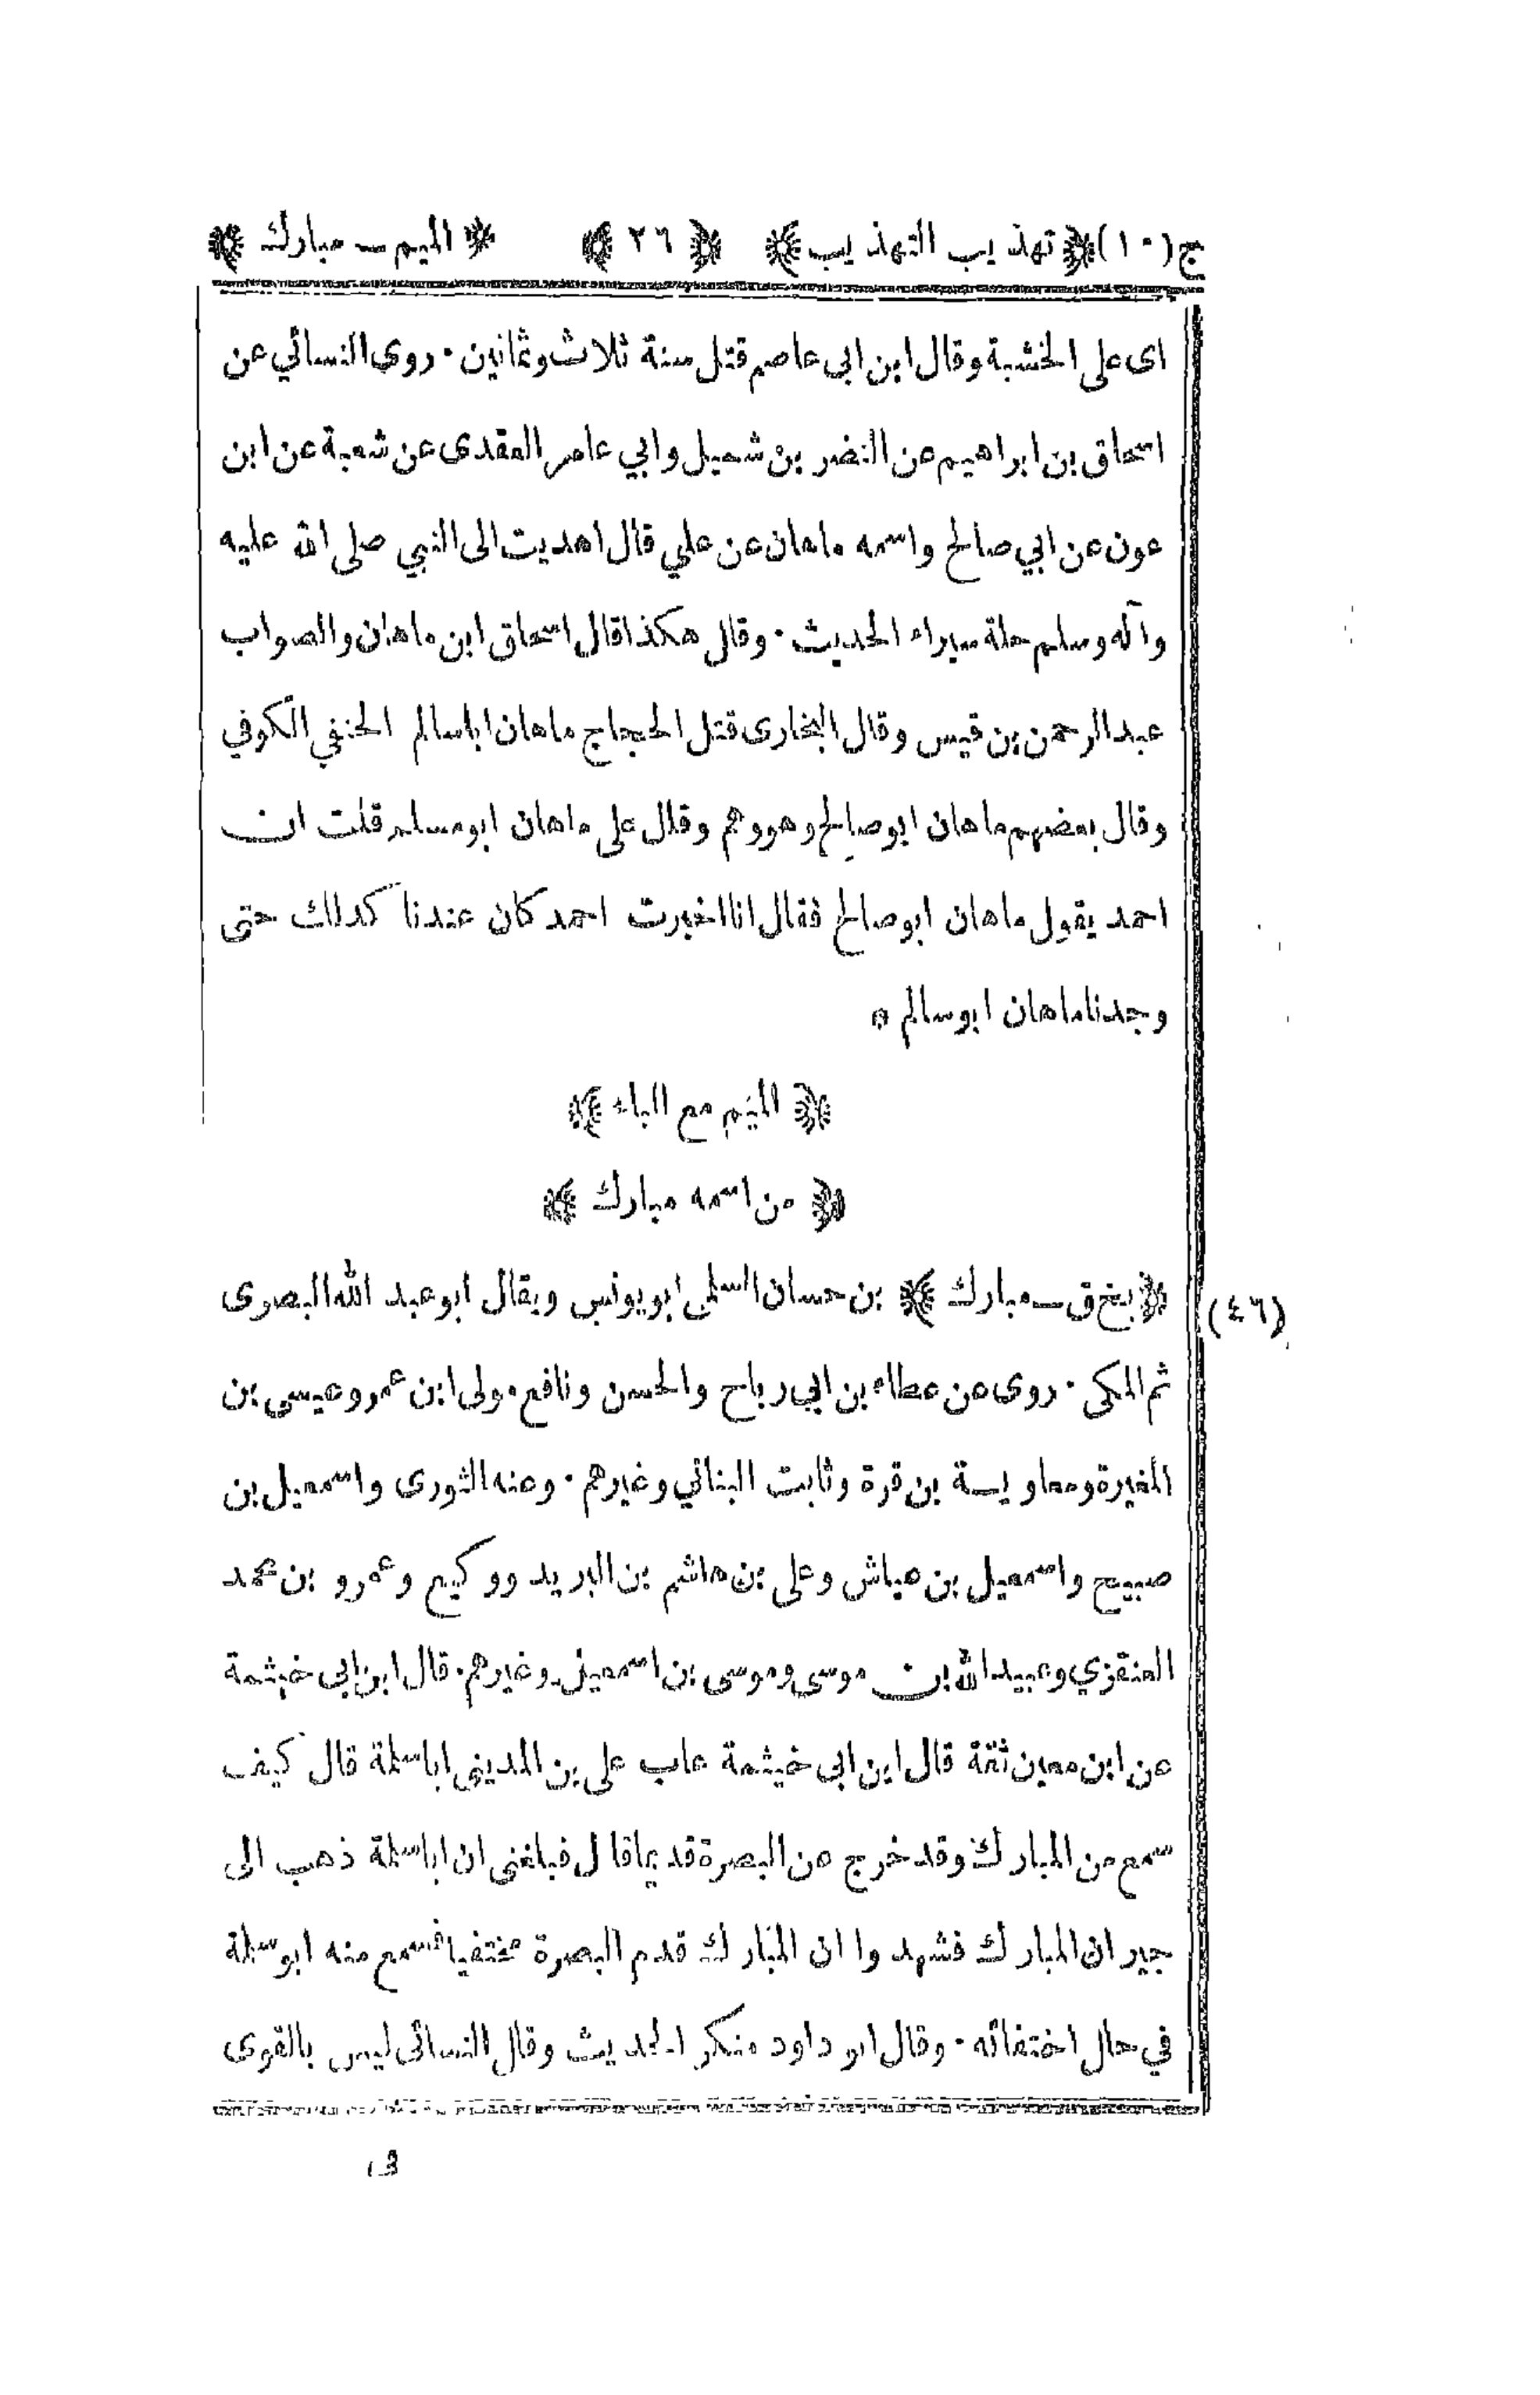 ج(١٠) ﴿تهذيب التهذيب﴾ ﴿٢٦﴾ ﴿الميم ـ مبارك﴾
اى على الخشبة وقال ابن ابى عاصم قتل سنة ثلاث وثمانين . روى النسائي عن
اسحاق بن ابراهيم عن النضر بن شميل وابي عامر العقدى عن شعبة عن ابن
عون عن ابي صالح واسمه ماهان عن علي قال اهديت الى النبي صلى الله عليه
وآله وسلم حلة سيراء الحديث . وقال هكذا قال اسحاق ابن ماهان والصواب
عبد الرحمن بن قيس وقال البخارى قتل الحجاج ماهان ابا سالم الحنفي الكوفي
وقال بعضهم ماهان ابو صالح وهو وهم وقال على ماهان ابو مسلم قلت ان
احمد يقول ماهان ابو صالح فقال انا اخبرت احمد كان عندنا كدلك حتى
وجدنا ماهان ابو سالم *
﴿الميم مع الباء﴾
﴿من اسمه مبارك﴾
(٤٦) ﴿بخ ق ـ مبارك﴾ بن حسان السلمى ابو يونس ويقال ابو عبد الله البصرى
ثم المكى . روى عن عطاء بن ابي رباح والحسن ونافع مولى ابن عمر وعيسى بن
المغيرة ومعاوية بن قرة وثابت البناني وغيرهم . وعنه الثورى واسمعيل بن
صبيح واسمعيل بن عياش وعلى بن هاشم بن البريد ووكيع وعمرو بن محمد
العنقزي وعبيد الله بن موسى وموسى بن اسمعيل وغيرهم . قال ابن ابى خيثمة
عن ابن معين ثقة قال ابن ابى خيثمة عاب على بن المدينى ابا سلمة قال كيف
سمع من المبارك وقد خرج عن البصرة قديما قال فبلغنى ان ابا سلمة ذهب الى
جيران المبارك فشهدوا ان المبارك قدم البصرة مختفيا فسمع منه ابو سلمة
في حال اختفائه . وقال ابو داود منكر الحديث وقال النسائى ليس بالقوى